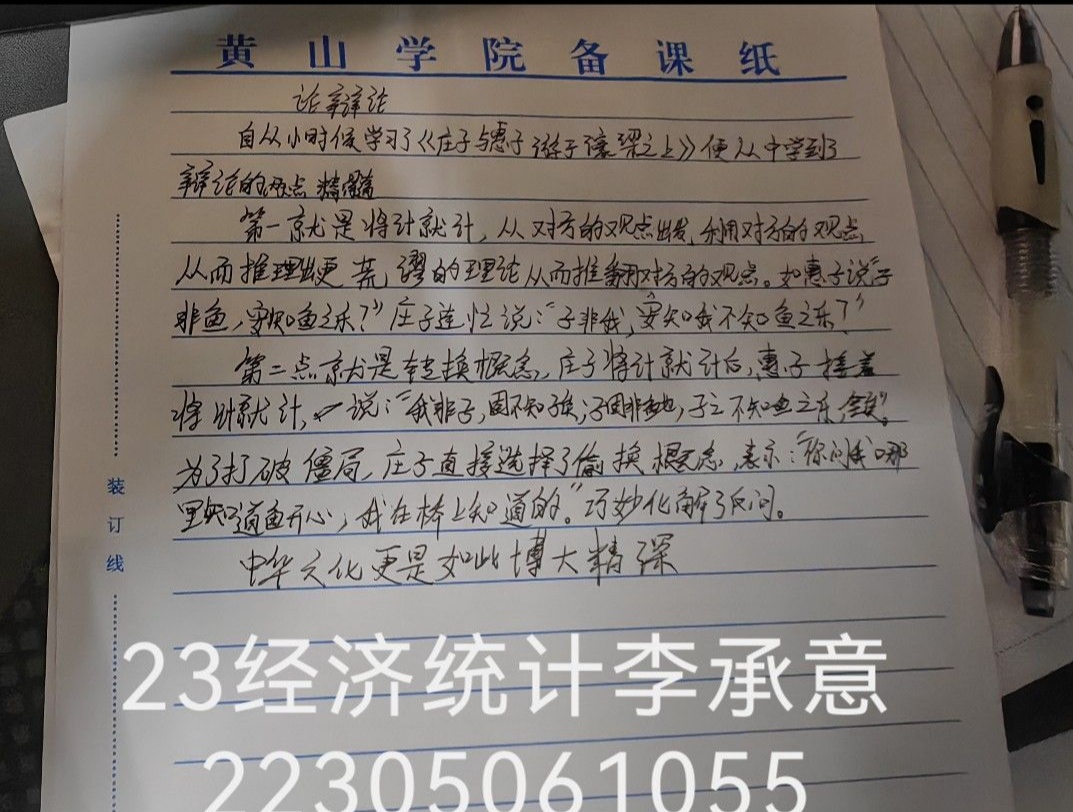 黄山学院备课纸
论辩论
自从小时候学习了《庄子与惠子游于濠梁之上》便从中学到了
辩论的两点精髓
第一就是将计就计，从对方的观点出发，利用对方的观点，
从而推理出更荒谬的理论从而推翻对方的观点。如惠子说“子
非鱼，安知鱼之乐？”庄子连忙说：“子非我，安知我不知鱼之乐？”
第二点就是转换概念，庄子将计就计后，惠子接着
将计就计，说：“我非子，固不知子矣；子固非鱼也，子之不知鱼之乐全矣”。
为了打破僵局，庄子直接选择了偷换概念，表示：“你问我哪
里知道鱼开心，我在桥上知道的。”巧妙化解了反问。
中华文化更是如此博大精深
装
订
线
23经济统计李承意
22305061055